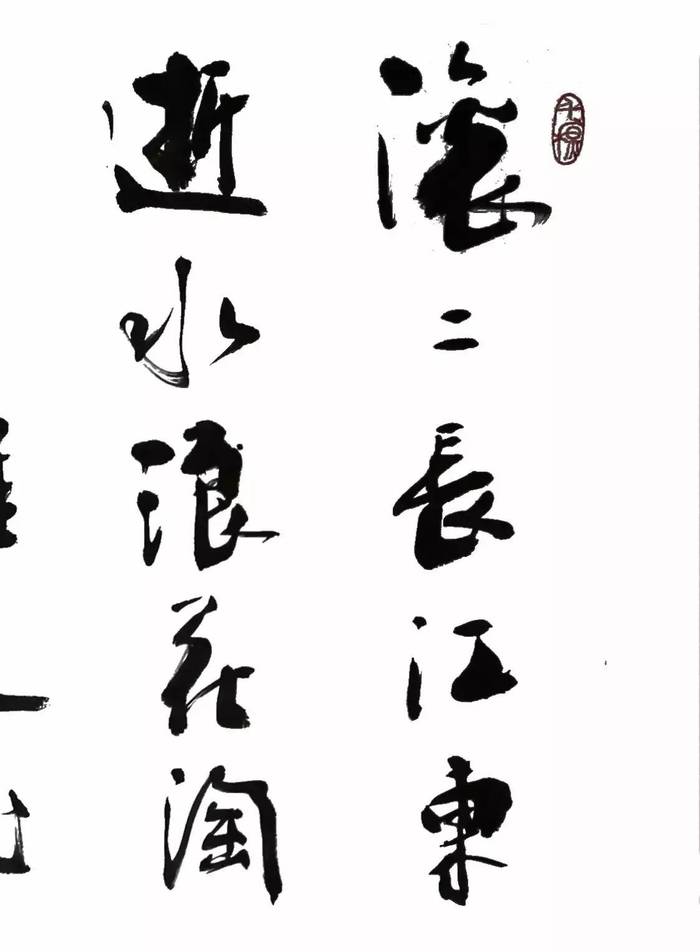 滚二長江東
逝水浪花淘